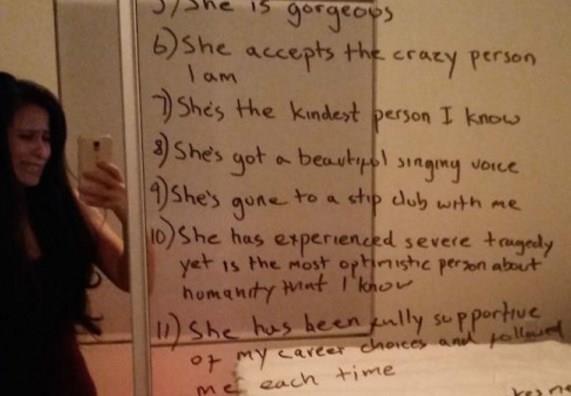 5) She is gorgeous
6) She accepts the crazy person
I am
7) She's the kindest person I know
8) She's got a beautiful singing voice
9) She's gone to a stip club with me
10) She has experienced severe tragedy
yet is the most optimistic person about
humanity that I know
11) She has been fully supportive
of my career choices and followed
me each time